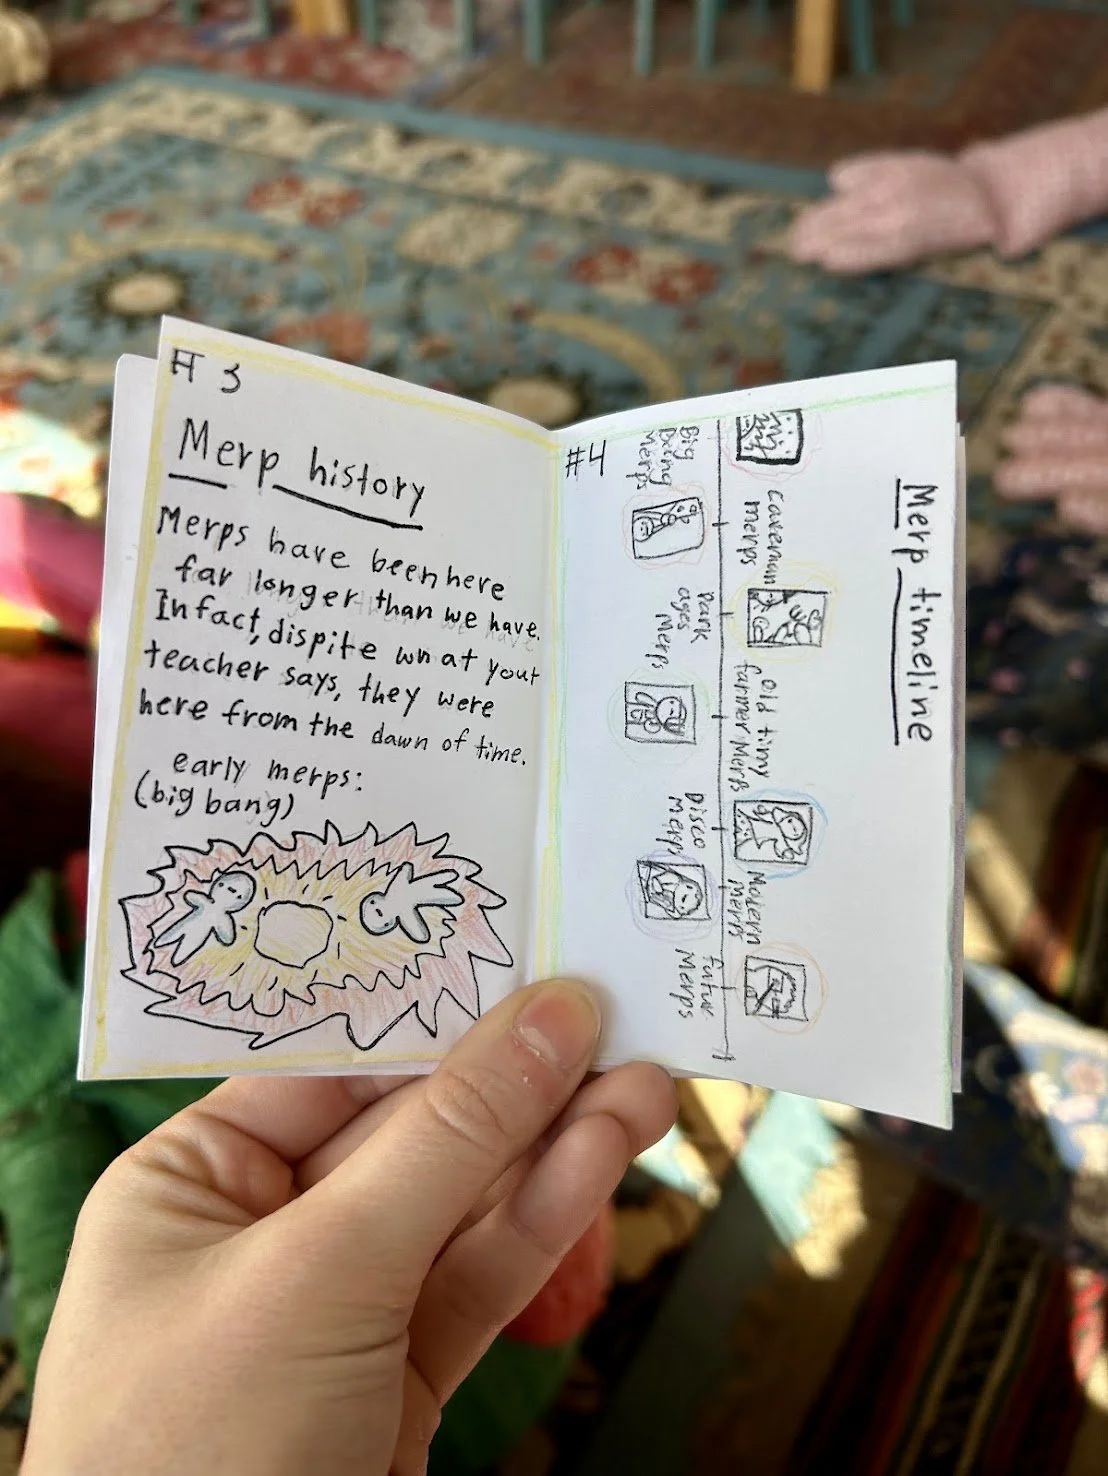 #3
Merp history
Merps have been here
far longer than we have.
In fact, dispite what yout
teacher says, they were
here from the dawn of time.
early merps:
(big bang)
#4
Merp timeline
Big
Bang
Merps
Caveman
merps
Dark
ages
Merps
Old timy
farmer Merps
Disco
Merps
Modern
Merps
future
Merps